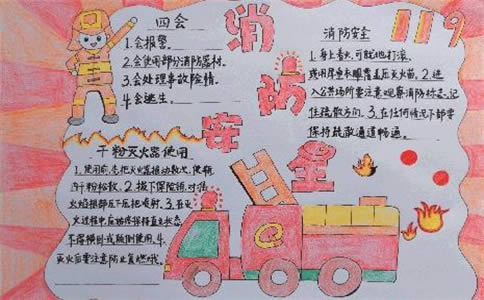 四会
1.会报警。
2.会使用部分消防器材。
3.会处理事故险情。
4会逃生。
消防安全
119
消防安全
1.身上着火,可就地打滚,
或用厚重衣服覆盖压灭火苗。2.进
入公共场所要注意观察消防标志,记
住疏散方向。3.在任何情况下都要
保持疏散通道畅通。
干粉灭火器使用
1.使用前,先把灭火器摇动数次,使瓶
内干粉松散。2.拔下保险销,对准
火焰根部压下压把喷射。3.在灭
火过程中,应始终保持直立状态,
不得横卧或颠倒使用。4.
灭火后要注意防止复燃